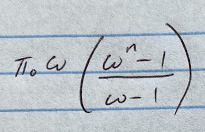 π₀ ω ( (ωⁿ − 1) / (ω − 1) )